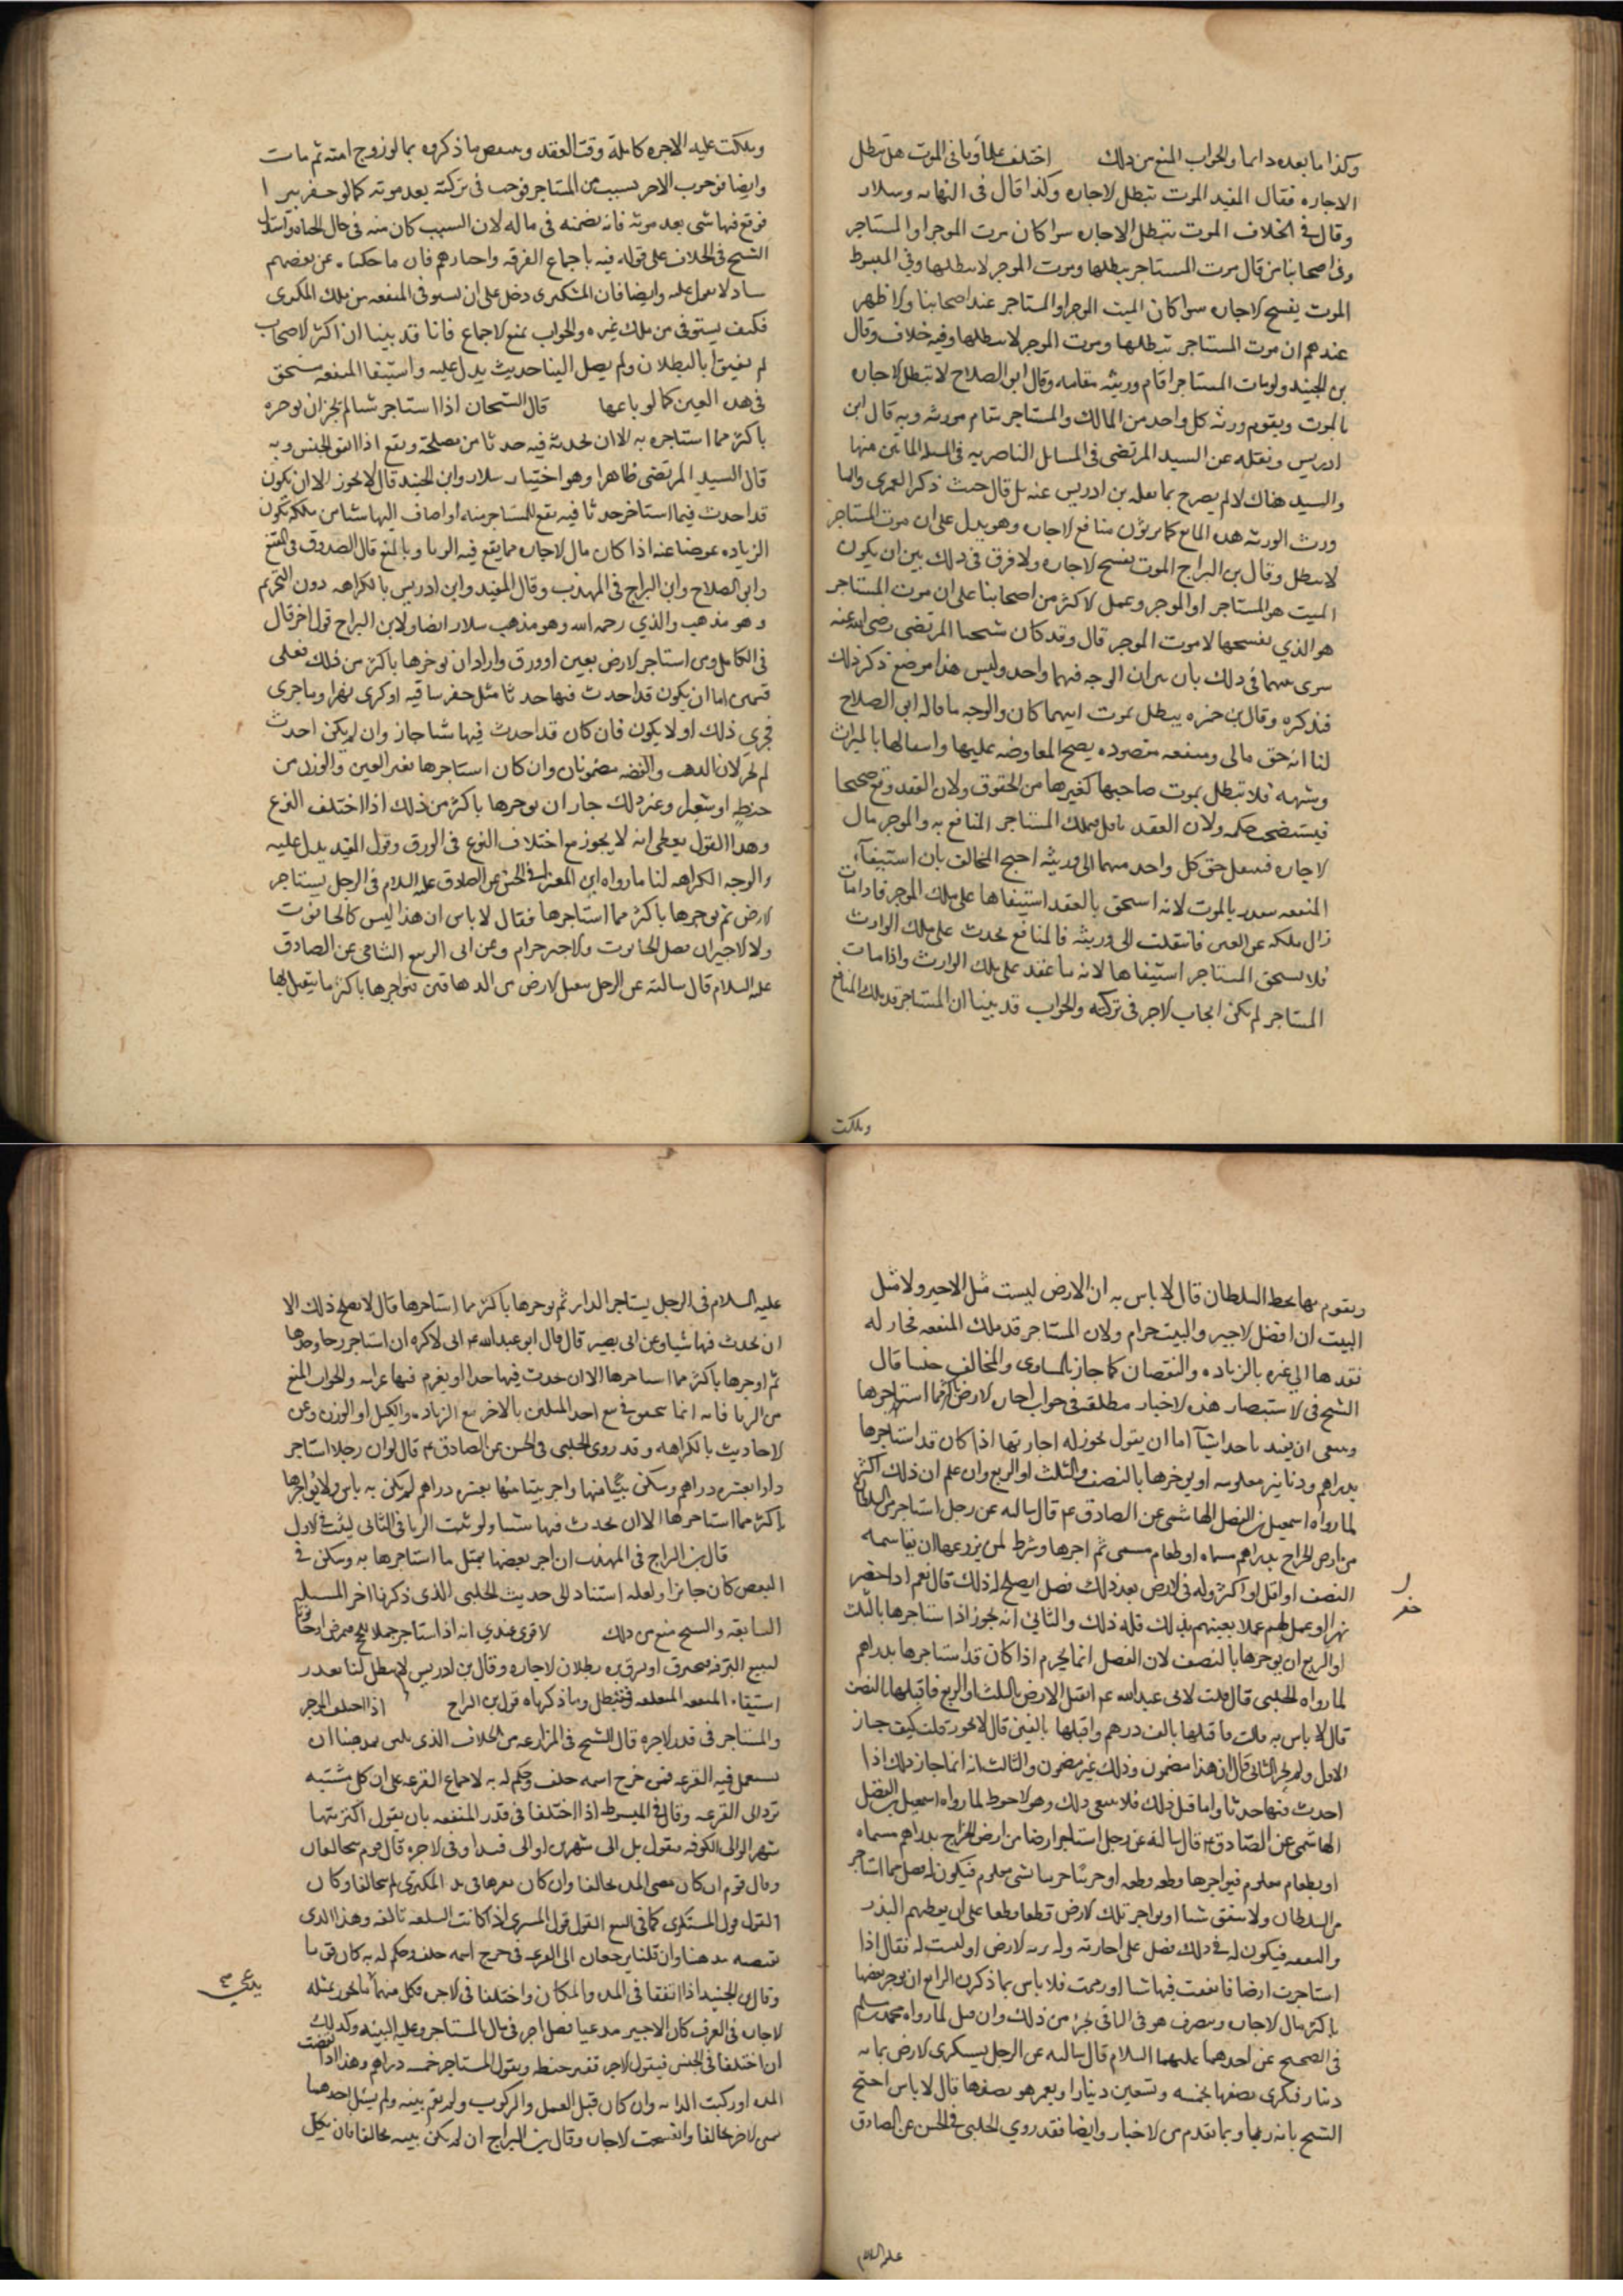 وكذا ما بعده دائما والجواب المنع من ذلك اختلف علماؤنا فى الموت هل تبطل
الاجاره فقال المفيد الموت تبطل الاجاره وكذا قال فى النهايه وسلار
وقال فى الخلاف الموت تبطل الاجاره سوا كان موت الموجر او المستاجر
وفى اصحابنا من قال موت المستاجر يبطلها وموت الموجر لا يبطلها وفى المبسوط
الموت يفسخ الاجاره سوا كان الميت الموجر او المستاجر عند اصحابنا والاظهر
عندهم ان موت المستاجر تبطلها وموت الموجر لا يبطلها وفيه خلاف وقال
بن الجنيد ولو مات المستاجر اقام ورثته مقامه وقال ابو الصلاح لا تبطل الاجاره
بالموت ويقوم ورثه كل واحد من المالك والمستاجر مقام مورثه وبه قال ابن
ادريس ونقله عن السيد المرتضى فى المسايل الناصريه فى المسله الماتين منها
والسيد هناك لم يصرح بما نقله بن ادريس عنه بل قال حيث ذكر العمرى
ورث الورثه هذه المنافع كما يرثون منافع الاجاره وهو يدل على ان موت المستاجر
لا يبطل وقال بن البراج الموت يفسخ الاجاره ولا فرق فى ذلك بين ان يكون
الميت هو المستاجر او الموجر وعمل الاكثر من اصحابنا على ان موت المستاجر
هو الذي يفسخها لا موت الموجر قال وقد كان شيخنا المرتضى رضى الله عنه
سوى بينهما فى ذلك بان بين ان الوجه فيهما واحد وليس هذا موضع ذكر ذلك
فنذكره وقال بن حمزه يبطل بموت ايهما كان والوجه ما قاله ابو الصلاح
لنا انه حق مالى ومنفعه مقصوده يصح المعاوضه عليها وانتقالها بالميراث
وشبهه فلا تبطل بموت صاحبها كغيرها من الحقوق ولان العقد وقع صحيحا
فيستصحب حكمه ولان العقد ناقل فيملك المستاجر المنافع به والموجر مال
الاجاره فينتقل حق كل واحد منهما الى ورثته احتج المخالف بان استيفآء
المنفعه يتعذر بالموت لانه استحق بالعقد استيفاها على ملك الموجر فاذا مات
زال ملكه عن العين فانتقلت الى ورثته فالمنافع يحدث على ملك الوارث
فلا يستحق المستاجر استيفاها لانه ما عقد على ملك الوارث واذا مات
المستاجر لم يكن ايجاب الاجر فى تركته والجواب قد بينا ان المستاجر قد ملك المنافع
وملكت
وملكت عليه الاجره كامله وقت العقد وينتقض ما ذكروه بما لو زوج امته ثم مات
وايضا فوجوب الاجر بسبب من المستاجر فوجب فى تركته بعد موته كما لو حفر بيرا
فوقع فيها شى بعد موته فانه يضمنه فى ماله لان السبب كان منه فى حال الحياه واستدل
الشيخ فى الخلاف على قوله فيه باجماع الفرقه واخبارهم فان ما حكينا عن بعضهم
شاذ لا يعول عليه وايضا فان المكترى دخل على ان يستوفى المنفعه من ملك المكرى
فكيف يستوفى من ملك غيره والجواب نمنع الاجماع فانا قد بينا ان اكثر الاصحاب
لم يفتوا بالبطلان ولم يصل الينا حديث يدل عليه واستيفا المنفعه مستحق
فى هذه العين كما لو باعها قال الشيخان اذا استاجر شيا لم يجز ان يوجره
باكثر مما استاجره به الا ان يحدث فيه حدثا من مصلحة ونفع اذا اتفق الجنس وبه
قال السيد المرتضى ظاهرا وهو اختيار سلار وابن الجنيد قال لا يجوز الا ان يكون
قد احدث فيما استاجر حدثا فيه نفع للمستاجر منه او اضاف اليها شيا من ملكه تكون
الزياده عوضا عنه اذا كان مال الاجاره مما يقع فيه الربا وبالمنع قال الصدوق فى المقنع
وابو الصلاح وابن البراج فى المهذب وقال المفيد وابن ادريس بالكراهه دون التحريم
وهو مذهب والدي رحمه الله وهو مذهب سلار ايضا ولابن البراج قول اخر قال
فى الكامل ومن استاجر الارض بعين او ورق واراد ان يوجرها باكثر من ذلك فعلى
قسمين اما ان يكون قد احدث فيها حدثا مثل حفر ساقيه او كرى نهرا وما جرى
مجرى ذلك او لا يكون فان كان قد احدث فيها شيا جاز وان لم يكن احدث
لم يجز لان الذهب والفضه مضمونان وان كان استاجرها بغير العين والورق من
حنطه او شعير وغير ذلك جاز ان يوجرها باكثر من ذلك اذا اختلف النوع
وهذا القول يعطى انه لا يجوز مع اختلاف النوع فى الورق وقول المفيد يدل عليه
والوجه الكراهه لنا ما رواه ابى المعزا فى الحسن عن الصادق عليه السلام فى الرجل يستاجر
الارض ثم يوجرها باكثر مما استاجرها فقال لا باس ان هذا ليس كالحانوت
ولا الاجير ان فضل الحانوت والاجير حرام وعن ابى الربيع الشامى عن الصادق
عليه السلام قال سالته عن الرجل يتقبل الارض من الدهاقين فيواجرها باكثر ما يتقبل بها
ويقوم فيها بحظ السلطان قال لا باس به ان الارض ليست مثل الاجير ولا مثل
البيت ان فضل الاجير والبيت حرام ولان المستاجر قد ملك المنفعه فجاز له
نقلها الى غيره بالزياده والنقصان كما جاز بالمساوى والمخالف جنسا قال
الشيخ فى الاستبصار هذه الاخبار مطلقه فى جواب اجاره الارض باكثر مما استاجرها
وينبغى ان يقيد باحد اشيآ اما ان يقول يجوز له اجارتها اذا كان قد استاجرها
بدراهم ودنانير معلومه او يوجرها بالنصف والثلث او الربع وان علم ان ذلك اكثر
لما رواه اسمعيل بن الفضل الهاشمى عن الصادق ع قال سالته عن رجل استاجر من السلطان
من ارض الخراج بدراهم مسماه او طعام مسمى ثم اجرها وشرط لمن يزرعها ان يقاسمه
النصف او اقل او اكثر وله فى الارض بعد ذلك فضل ايصلح له ذلك قال نعم اذا حفر
حفر
نهرا او عمل لهم عملا يعينهم بذلك فله ذلك والثانى انه يجوز اذا استاجرها بالثلث
او الربع ان يوجرها بالنصف لان الفضل انما يحرم اذا كان قد استاجرها بدراهم
لما رواه الحلبى قال قلت لابى عبدالله ع اتقبل الارض بالثلث او الربع فاقبلها بالنصف
قال لا باس به قلت فاتقبلها بالف درهم واقبلها بالفين قال لا يجوز قلت كيف جاز
الاول ولم يجز الثانى قال لان هذا مضمون وذلك غير مضمون والثالث انه انما جاز ذلك اذا
احدث فيها حدثا واما قبل ذلك فلا ينبغى ذلك وهو الاحوط لما رواه اسمعيل بن الفضل
الهاشمى عن الصادق ع قال سالته عن رجل استاجر ارضا من ارض الخراج بدراهم مسماه
او بطعام معلوم فيواجرها قطعه قطعه او جريبا جريبا بشى معلوم فيكون له فضل مما استاجر
من السلطان ولا ينفق شيا او يواجر تلك الارض قطعا قطعا على ان يعطيهم البذر
والنفقه فيكون له فى ذلك فضل على اجارته وله تربه الارض او ليست له فقال اذا
استاجرت ارضا فانفقت فيها شيا او رممت فلا باس بما ذكرت الرابع ان يوجر بعضها
باكثر مال الاجاره ويتصرف هو فى الباقى بجزء من ذلك وان قل لما رواه محمد بن مسلم
فى الصحيح عن احدهما عليهما السلام قال سالته عن الرجل يستكرى الارض بمايه
دينار فيكرى نصفها بخمسه وتسعين دينارا ويعمر هو نصفها قال لا باس احتج
الشيخ بانه ربا وبما تقدم من الاخبار وايضا فقد روى الحلبى فى الحسن عن الصادق
عليه السلام
عليه السلام فى الرجل يستاجر الدار ثم يوجرها باكثر مما استاجرها قال لا يصلح ذلك الا
ان يحدث فيها شيا وعن ابى بصير قال قال ابو عبدالله ع انى لاكره ان استاجر رحا وحدها
ثم اوجرها باكثر مما استاجرها الا ان يحدث فيها حدثا او يغرم فيها غرامه والجواب المنع
من الربا فانه انما يتحقق فى بيع احد المثلين بالاخر مع الزياده والكيل او الوزن وعن
الاحاديث بالكراهه وقد روى الحلبى فى الحسن عن الصادق ع قال لو ان رجلا استاجر
دارا بعشره دراهم وسكن بيتا منها واجر بيتا منها بعشره دراهم لم يكن به باس ولا يؤاجرها
باكثر مما استاجرها الا ان يحدث فيها شيا ولو ثبت الربا فى الثانى لثبت فى الاول
قال بن البراج فى المهذب ان اجر بعضها بمثل ما استاجرها به وسكن فى
البعض كان جائزا ولعله استناد الى حديث الحلبى الذى ذكرنا اخر المسله
السابقه والشيخ منع من ذلك الاقوى عندي انه اذا استاجر جملا للحج فمرض او حانوتا
لبيع البز فيحترق او يسرق بزه بطلان الاجاره وقال بن ادريس لا يبطل لنا تعذر
استيفاء المنفعه المتعلقه فتبطل وما ذكرناه قول بن البراج اذا اختلف الموجر
والمستاجر فى قدر الاجره قال الشيخ فى المزارعه من الخلاف الذى يليق بمذهبنا ان
يستعمل فيه القرعه فمن خرج اسمه حلف وحكم له به لاجماع الفرقه على ان كل مشتبه
ترد الى القرعه وقال فى المبسوط اذا اختلفا فى قدر المنفعه بان يقول اكتريتها
شهرا او الى الكوفه فيقول بل الى شهرين او الى فيد او فى الاجره قال قوم يتحالفان
وقال قوم ان كان مضى المده تحالفا وان كان بعدها فى يد المكترى لم يتحالفا وكان
القول قول المستكرى كما فى البيع القول قول المشترى اذا كانت السلعه تالفه وهذا الذى
يقتضيه مذهبنا وان قلنا يرجعان الى القرعه فمن خرج اسمه حلف وحكم له به كان قويا
وقال بن الجنيد اذا اتفقا فى المده والمكان واختلفا فى الاجر فكل منهما ما يجوز بمثله
يدعى صح
الاجاره فى العرف كان الاجير مدعيا فضل اجر فى مال المستاجر وعليه البينه وكذلك
ان اختلفا فى الجنس فيقول الاجر قفيز حنطه ويقول المستاجر خمسه دراهم وهذا اذا انقضت
المده او ركبت الدابه وان كان قبل العمل والركوب ولم تقم بينه ولم يسلم احدهما
للاخر تحالفا وانفسخت الاجاره وقال بن البراج ان لم يكن بينه تحالفا فان نكل